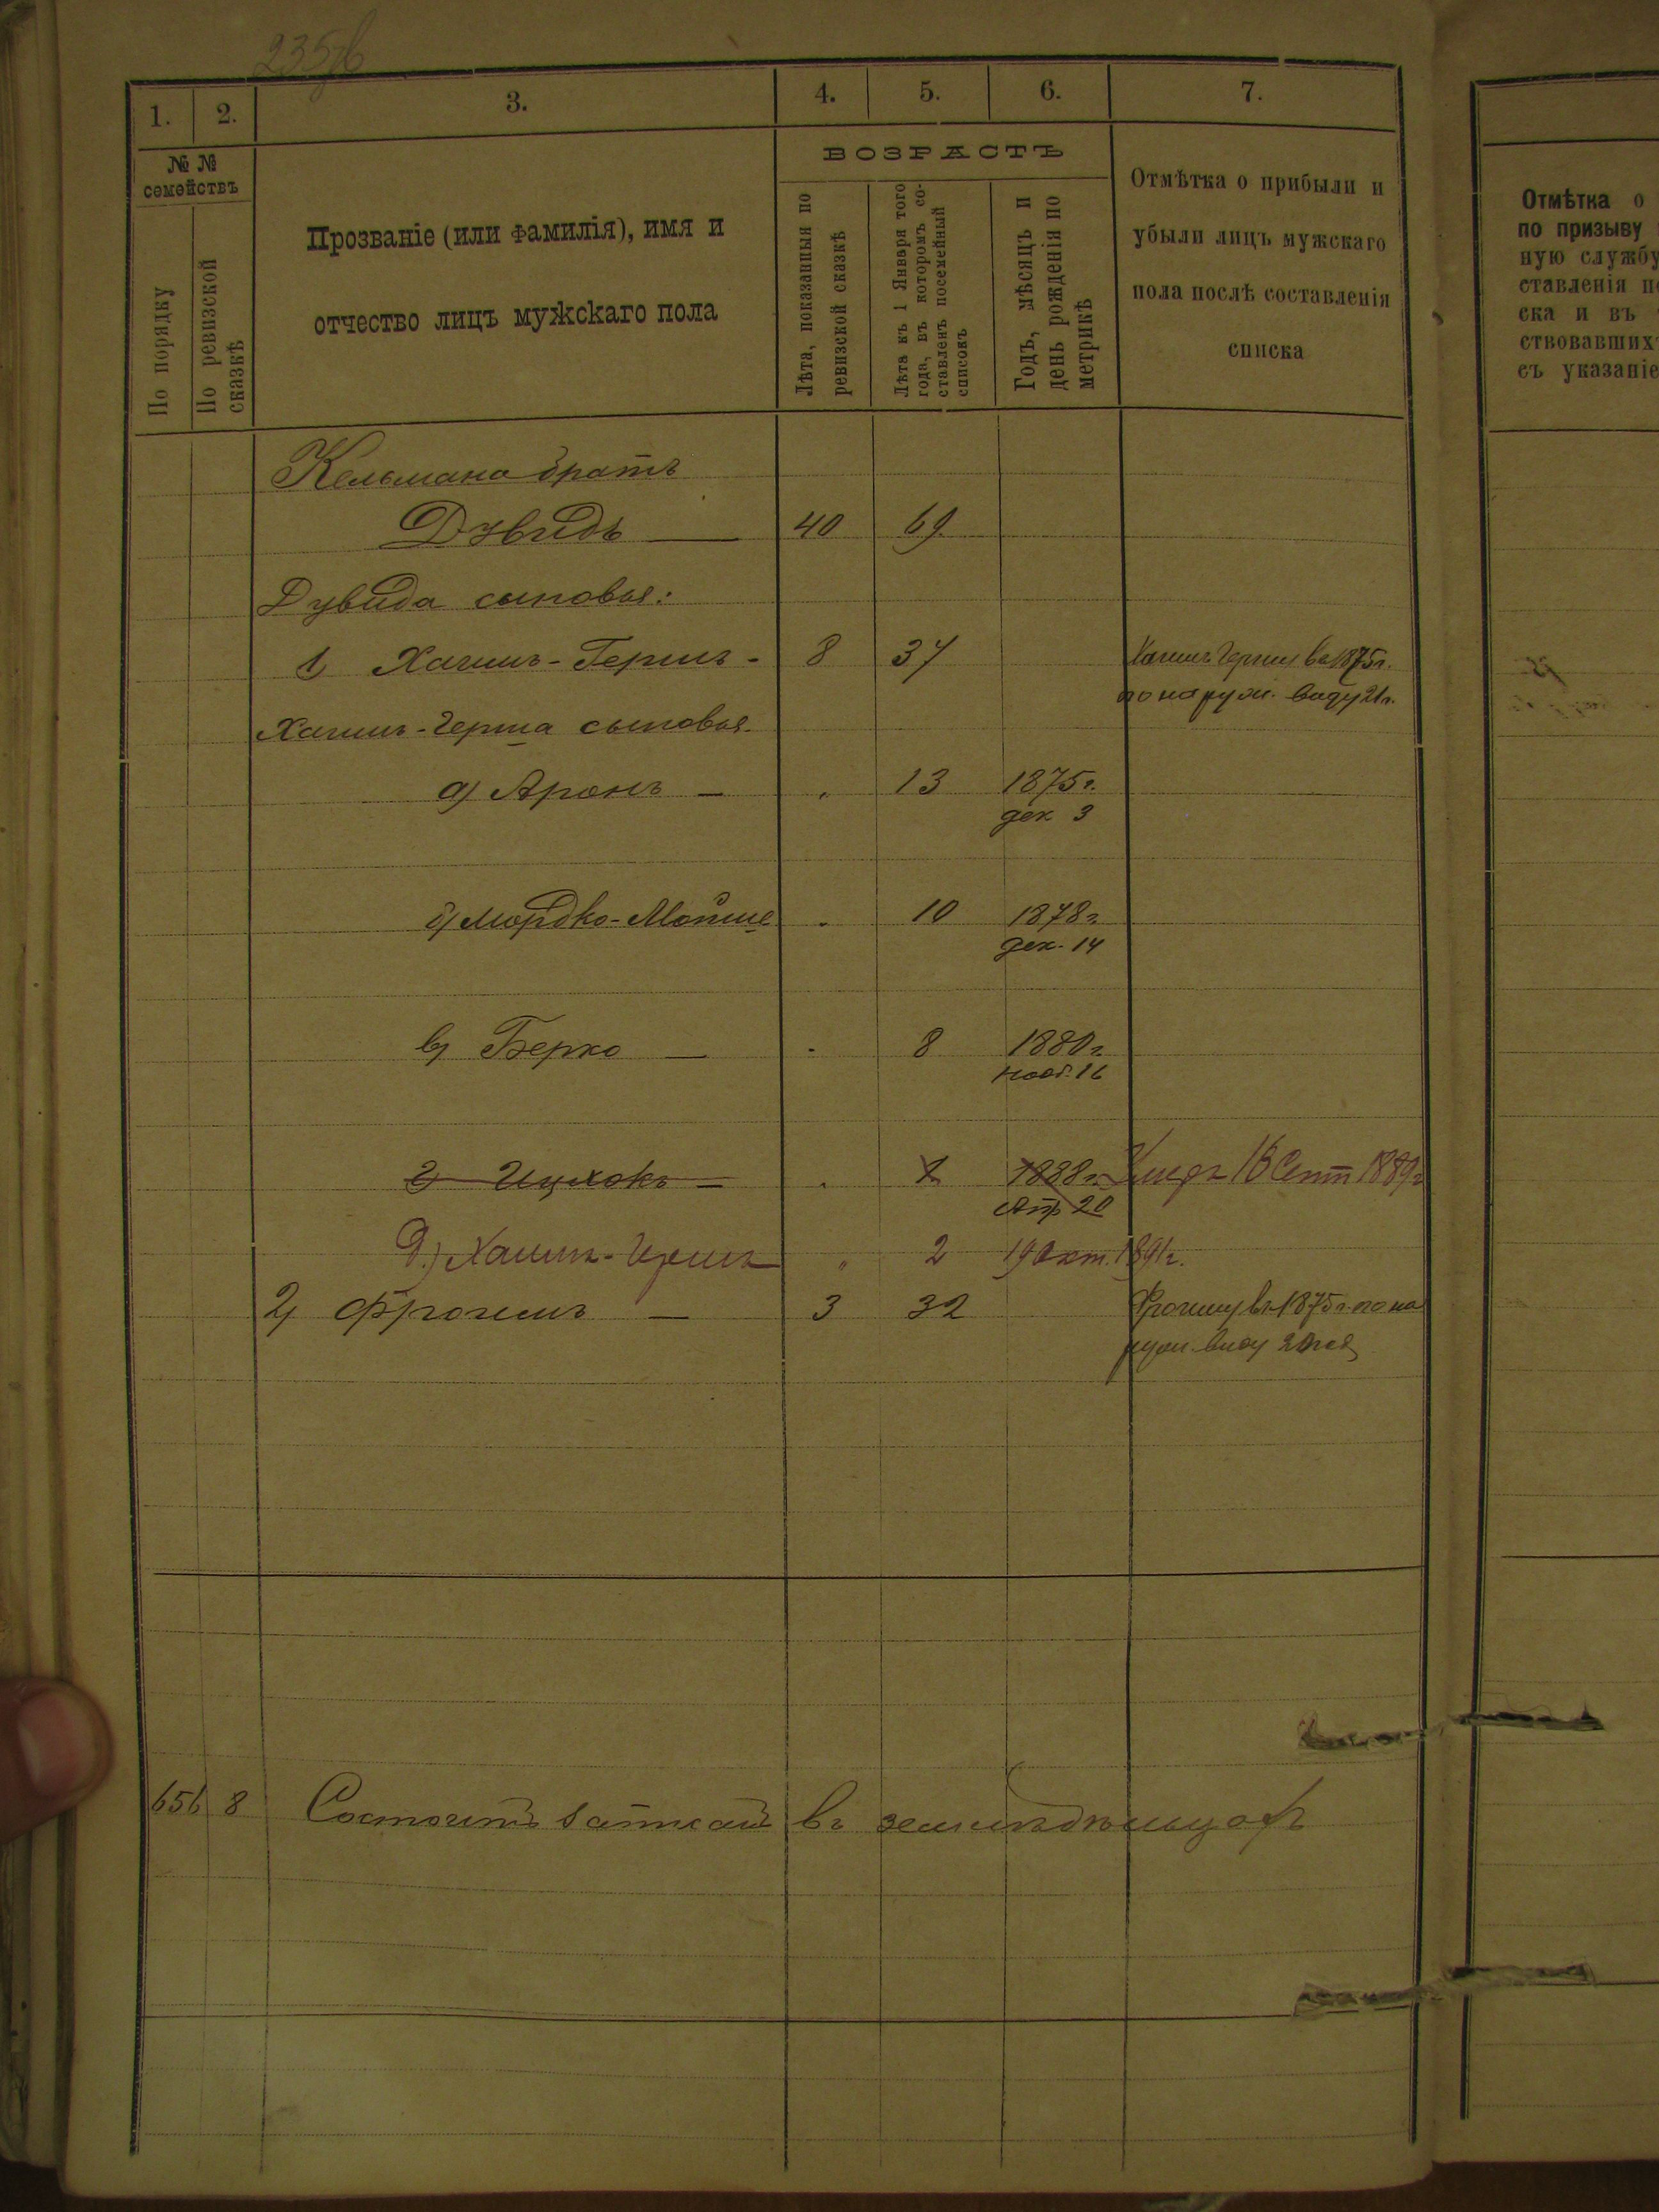 1. 2. 3. 4. 5. 6. 7.
№ №
семействъ
По порядку
По ревизской
сказкѣ
Прозваніе (или фамилія), имя и
отчество лицъ мужскаго пола
ВОЗРАСТЪ
Лѣта, показанныя по
ревизской сказкѣ
Лѣта къ 1 Января того
года, въ которомъ со-
ставленъ посемейный
списокъ
Годъ, мѣсяцъ и
день рожденія по
метрикѣ
Отмѣтка о прибыли и
убыли лицъ мужскаго
пола послѣ составленія
списка
Кельмана братъ
Дувидъ — 40 69
Дувида сыновья:
1 Хаимъ-Гершъ - 8 37 Хаимъ Гершу въ 1875 г.
по наруж. виду 21 г.
Хаимъ-Герша сыновья.
а) Аронъ — " 13 1875 г.
дек 3
б) Мордко-Мойше " 10 1878 г.
дек. 14
в) Берко — " 8 1880 г.
нояб. 16
г) Ицхокъ — " 1 1888 г. Умеръ 16 Сент 1889 г
Апр 20
д.) Хаимъ-Ицикъ " 2 19 Окт. 1891 г.
2) Фроимъ — 3 32 Фроиму въ 1875 г. по на
руж. виду 20
656 8 Состоитъ записанъ въ земледѣльцахъ
Отмѣтка о
по призыву
ную службу
ставленія
ска и въ
ствовавшихъ
съ указаніе